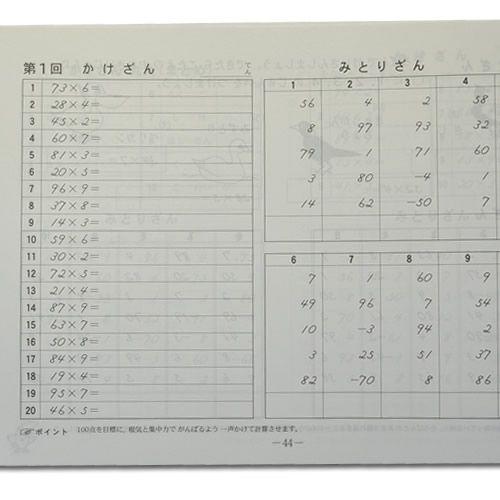 第1回 かけざん てん
1 73×6=
2 28×4=
3 45×2=
4 60×7=
5 81×3=
6 20×5=
7 96×9=
8 37×8=
9 14×3=
10 59×6=
11 30×2=
12 72×5=
13 21×4=
14 87×9=
15 63×7=
16 50×8=
17 84×9=
18 19×4=
19 95×7=
20 46×5=
みとりざん
1 2 3 4
56 4 2 58
8 97 93 32
79 1 71 60
3 80 -4 1
14 62 -50 7
6 7 8 9
7 1 60 9
49 96 7 54
10 -3 94 2
3 25 51 37
82 -70 8 86
ポイント 100点を目標に、根気と集中力で がんばるよう 一声かけて計算させます。
—44—